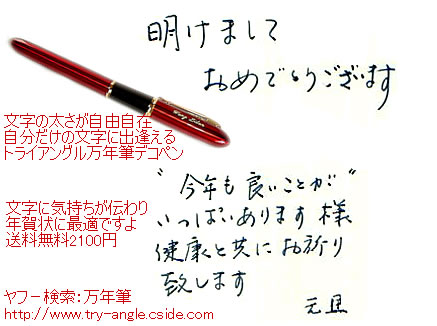 明けまして
おめでとうございます
文字の太さが自由自在
自分だけの文字に出逢える
トライアングル万年筆デコペン
"今年も良いことが"
いっぱいあります様
健康と共にお祈り
致します
元旦
文字に気持ちが伝わり
年賀状に最適ですよ
送料無料2100円
ヤフー検索：万年筆
http://www.try-angle.cside.com